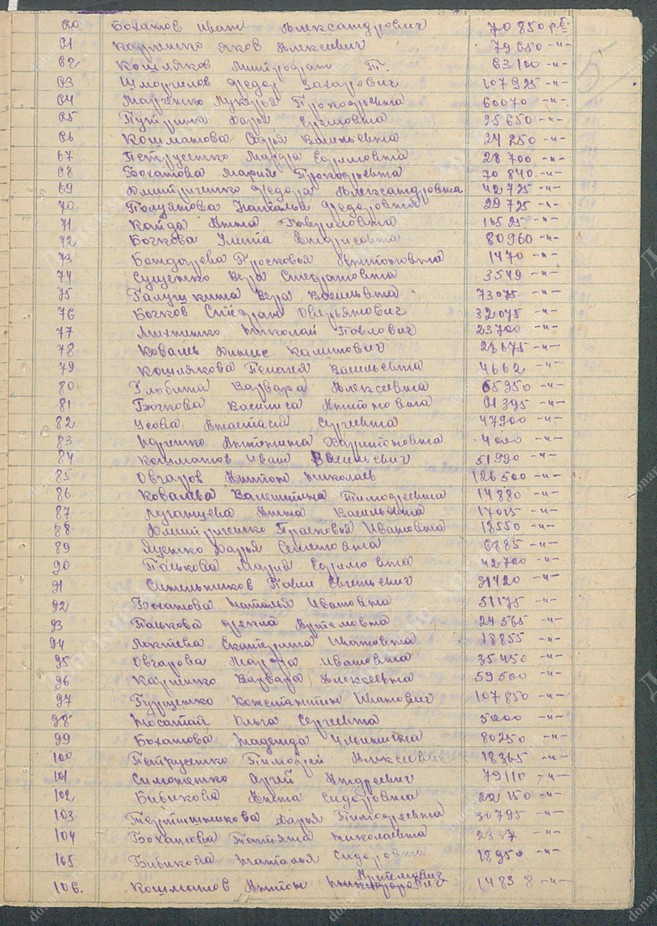 60 Боханов Иван Александрович 70850 рб.
61 Карпенко Яков Алексеевич 79650 -"-
62 Кошляков Митрофан Т. 63100 -"-
63 Шморгилов Федор Захарович 107925 -"-
64 Марченко Лукерья Прокофьевна 60070 -"-
65 Дарья 95650 -"-
66 Кошманова Софья Васильевна 24250 -"-
67 Петрусенко Марфа Ефимовна 28700 -"-
68 Боханова Мария Прокофьевна 70840 -"-
69 Дмитриченко Федора Александровна 42725 -"-
70 Полуянова Наталья Федоровна 29725 -"-
71 Анна Гавриловна -"-
72 Бочкова Улита Андреевна 80960 -"-
73 Просковья Антоновна 1470 -"-
74 Сущенко Вера Степановна 3549 -"-
75 Галушкина Вера Васильевна 73075 -"-
76 Бочков Стефан Оверьянович 32075 -"-
77 Михненко Николай Павлович 23700 -"-
78 Коваль Денис Калинович 23675 -"-
79 Кошлякова Пелагея Васильевна 4662 -"-
80 Глобина Варвара Алексеевна 65350 -"-
81 Бочкова Василиса Антоновна 91395 -"-
82 Усова Анастасия Сергеевна 47900 -"-
83 Антонина Харитоновна -"-
84 Кошманов Иван Васильевич 51990 -"-
85 Овчаров Антон Николаев 126500 -"-
86 Ковалева Валентина Тимофеевна 14880 -"-
87 Луганцева Анна Васильевна 17015 -"-
88 Дмитриченко Прасковья Ивановна 18550 -"-
89 Яценко Дарья Семеновна 6885 -"-
90 Панькова Мария Ефимовна 42700 -"-
91 Синельников Павел Евгеньевич 31420 -"-
92 Боханова Наталья Ивановна 51175 -"-
93 Панькова Артемовна 24565 -"-
94 Локтева Екатерина Ивановна 18855 -"-
95 Овчарова Марфа Ивановна 35450 -"-
96 Карпенко Варвара Алексеевна 59500 -"-
97 Гурщенко Константин Иванович 107850 -"-
98 Носатая Ольга Сергеевна 5000 -"-
99 Боханова Надежда Ильинична 80250 -"-
100 Петрусенко Тимофей Алексеевич 18365 -"-
101 Симоненко Андреевич 79110 -"-
102 Бибикова Анна Сидоровна 22150 -"-
103 Дарья Тимофеевна 30795 -"-
104 Боханова Татьяна Николаевна 2337 -"-
105 Бибикова Наталья Сидоровна 18950 -"-
Артемович
106. Кошманов Антон 14838 -"-